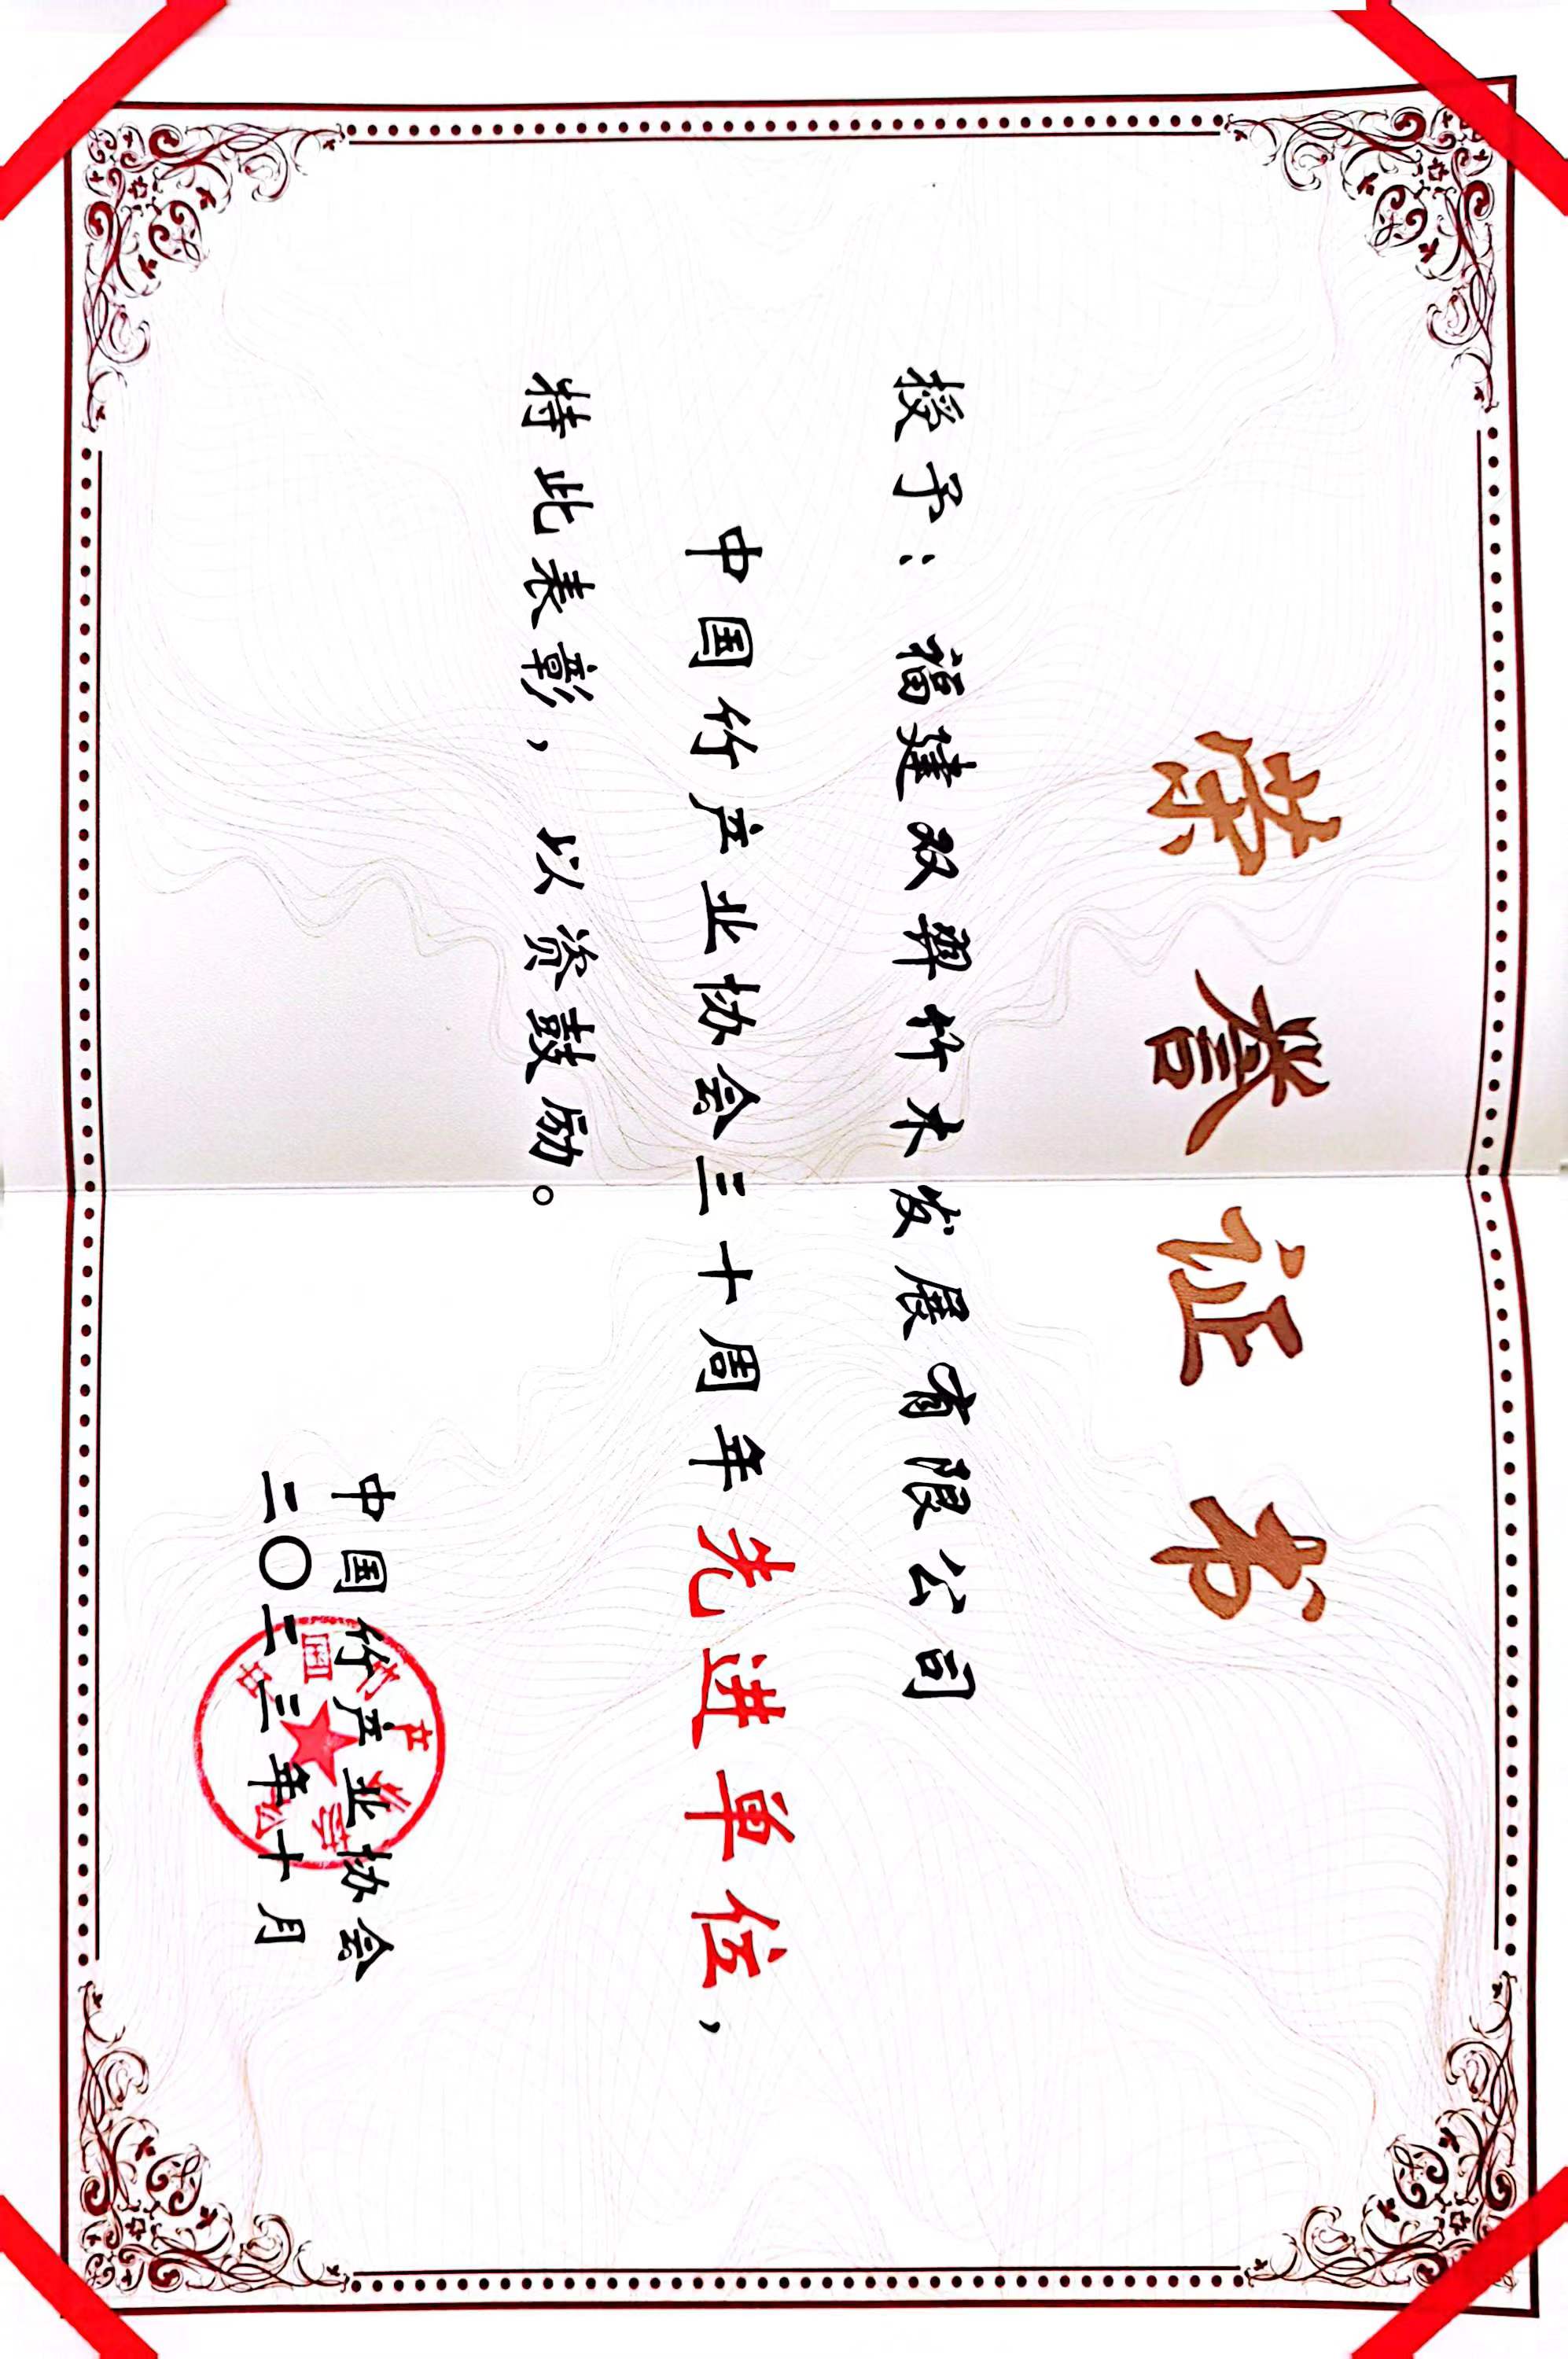 荣誉证书
授予：福建双羿竹木发展有限公司
中国竹产业协会三十周年先进单位，
特此表彰，以资鼓励。
中国竹产业协会
二〇二三年十月
中国竹产业协会